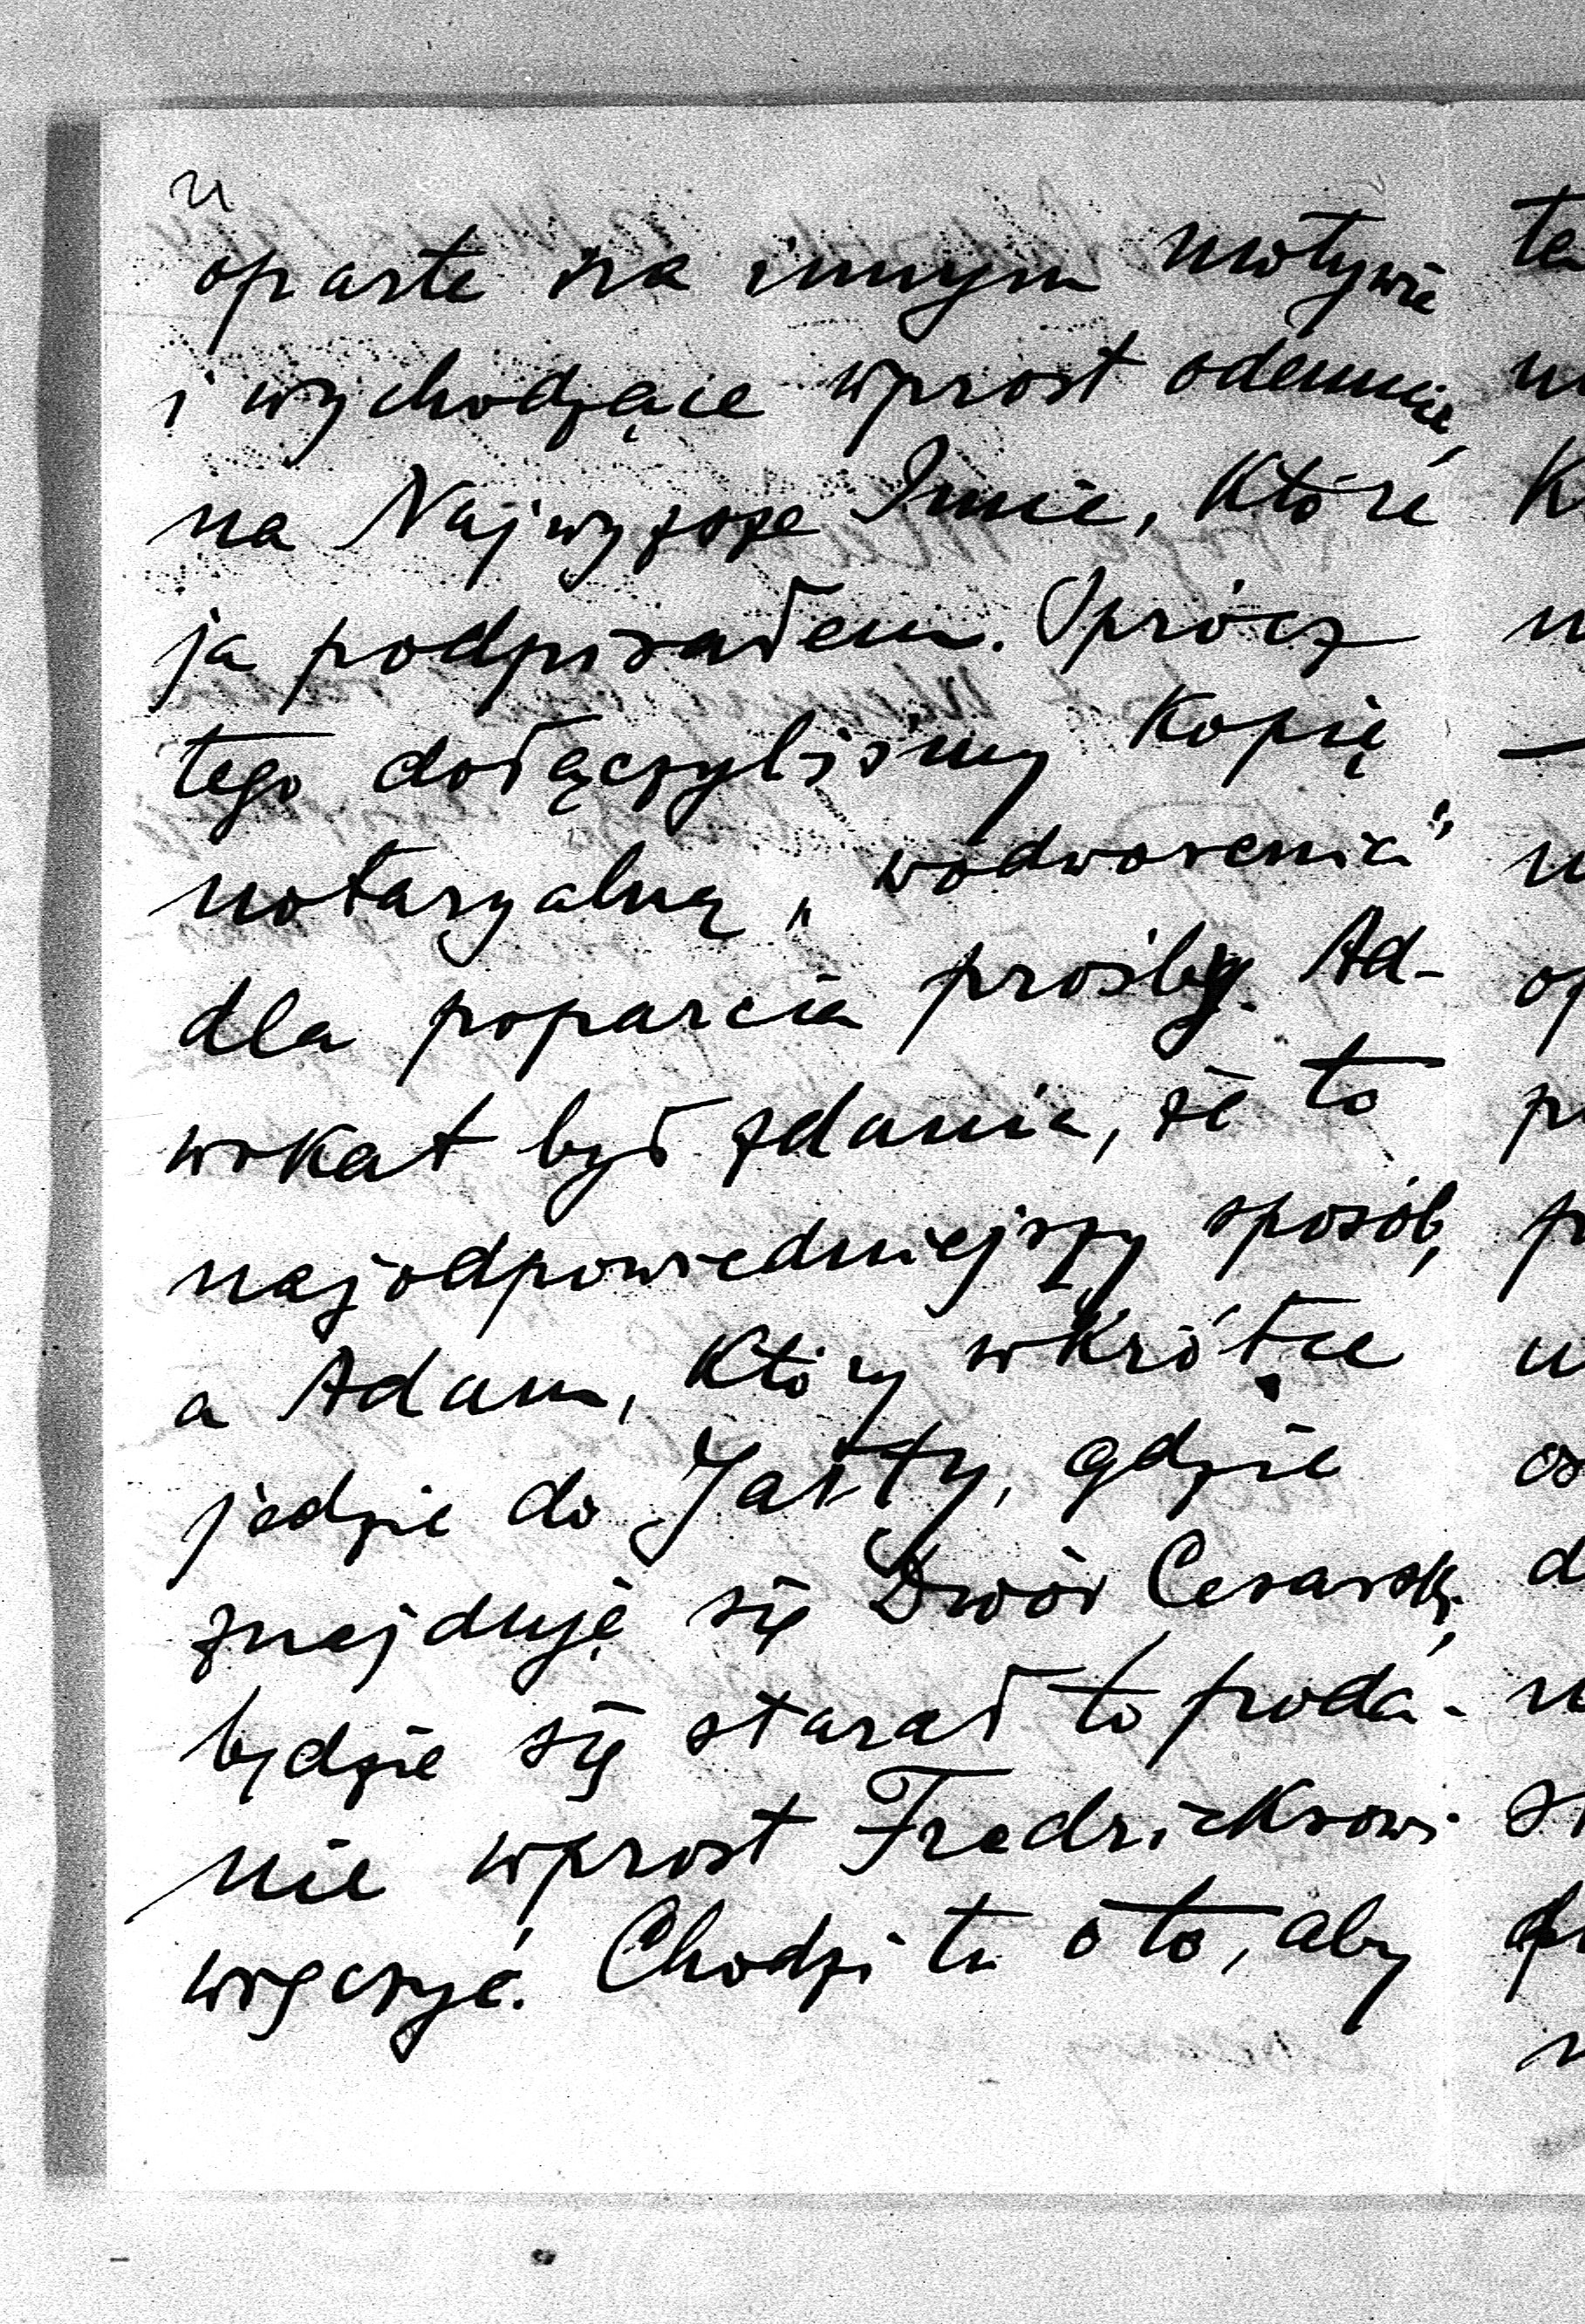 oparte na innym motywie
i wychodzące wprost odemnie,
na Najwyższe Imie, które
ja podpisałem. Oprócz
tego dołączyliśmy kopię
notaryalną „wodworenia"
dla poparcia prośby. Ad-
wokat był zdania, że to
najodpowiedniejszy sposób,
a Adam, który wkrótce
jedzie do Jałty, gdzie
znajduję się Dwór Cesarski,
będzie się starał to poda-
nie wprost Fredricksowi
wręczyć. Chodzi tu o to, aby